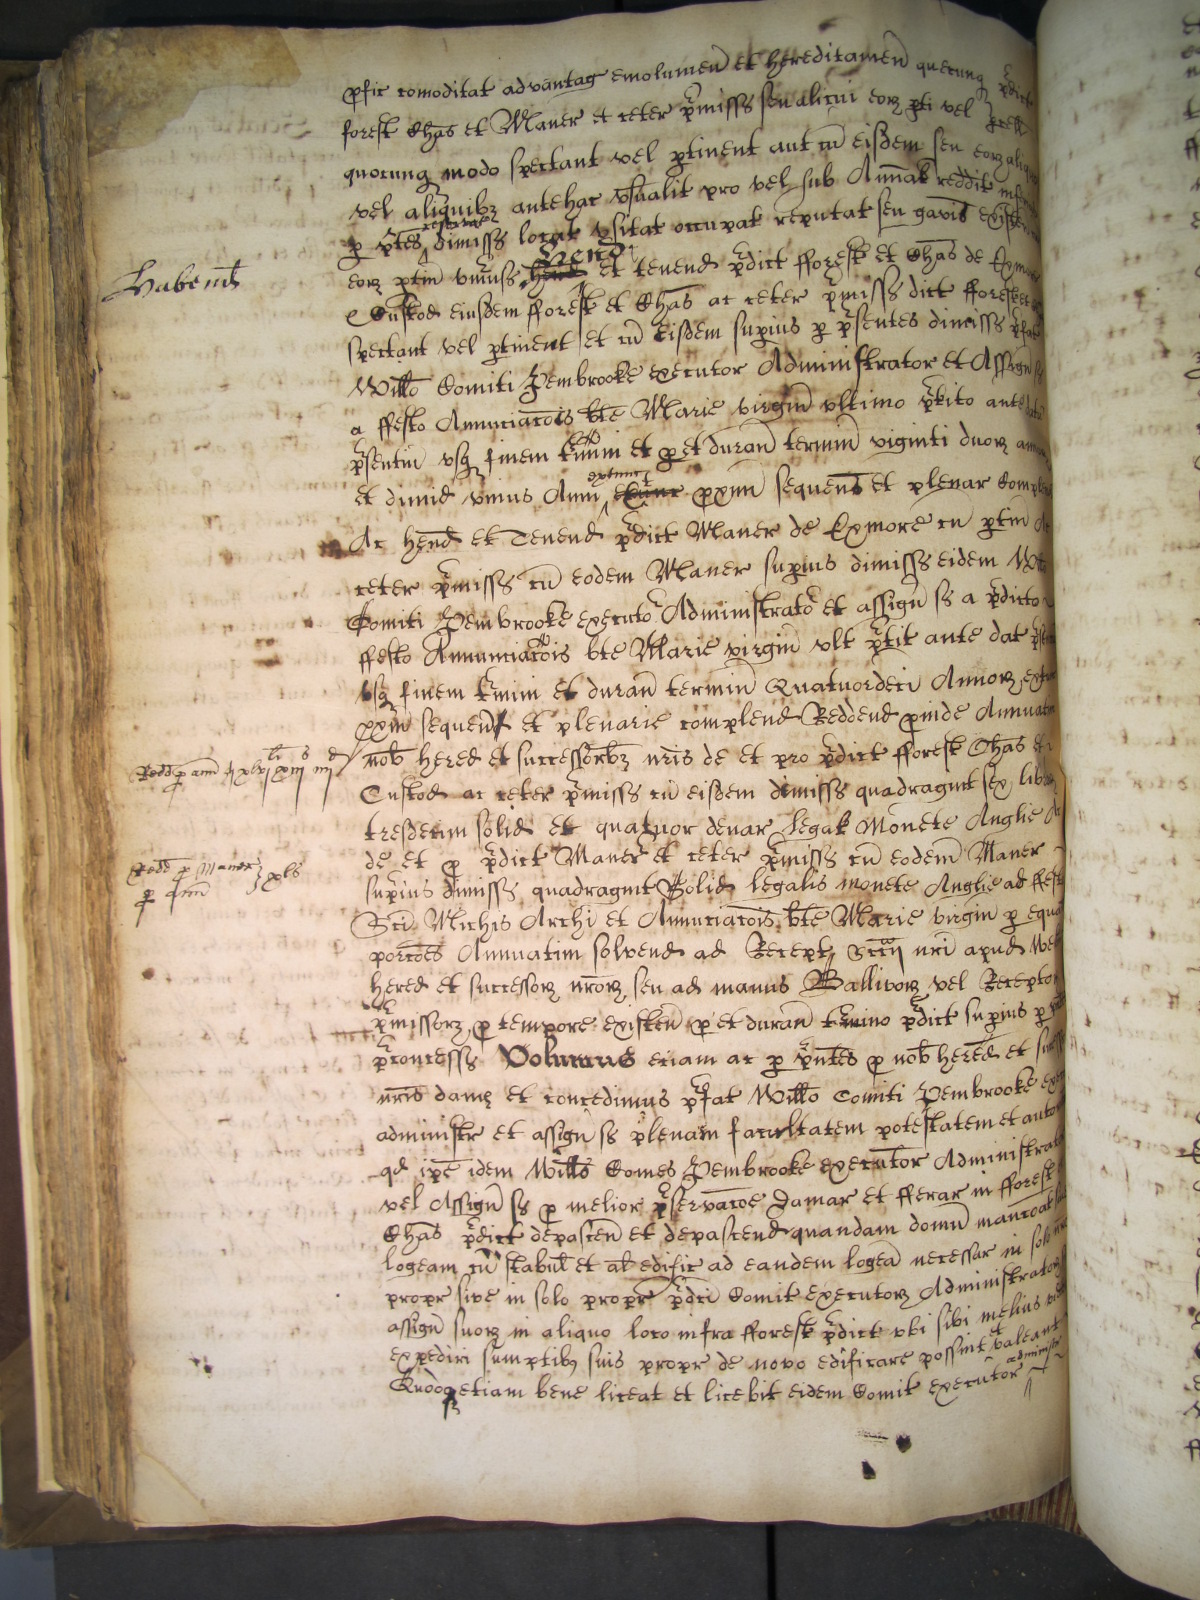 ꝑfic comoditat advantag emolumen̄ et hereditamen̄ quecunq p̄dict
forest Chas̄ et Maner et ceter p̄miss seu alicui eoꝝ ꝑti vel
quocunq modo spectant vel ꝑtinent aut cū eisdem seu eoꝝ aliquo
vel aliquibꝫ antehac vsualit pro vel sub Annal reddit
ꝑ p̄ntes reservat dimiss locat vsitat occupat reputat seu gavis existen
eoꝝ ꝑtin̄ vniuss Hend et tenend p̄dict fforest et Chas̄ de Exmore
Custod eiusdem fforest et Chas̄ ac ceter p̄miss dict fforest et
spectant vel ꝑtinent et cū eisdem suꝑius ꝑ p̄sentes dimiss p̄fat
Willo Comiti Pembrooke executor Administrator et Assign s
a ffesto Annunciac̄ois bte Marie virgin̄ ultimo p̄terito ante dat
p̄sentiū vsq finem t̄mini et ꝑ et duran̄ termin̄ viginti duoꝝ annoꝝ
et dimid vnius Anni extunc ꝓxim sequen̄ et plenar Complend
Ac hend et Tenend p̄dict Maner de Exmore cū ꝑtin̄ Ac
ceter p̄miss cū eodem Maner suꝑius dimiss eidem Willo
Comiti Pembrooke executō Administratō et assign̄ ss a p̄dicto
ffesto Annunciac̄ois bte Marie virgin̄ vlt p̄tit ante dat p̄sen
vsq finem t̄mini et duran̄ termin̄ Quatuordeci Annoꝝ extunc
ꝓxim̄ sequen̄ et plenarie complend Reddend ꝓinde Annuatim
nob hered et successorbꝫ nris de et pro p̄dict fforest Chas̄ et
Custod ac ceter p̄miss cū eisdem dimiss quadragint sex libr
tresdecim solid et quatuor denar legal monete Anglie Ac
de et ꝑ p̄dict Maner et ceter p̄miss cū eodem Maner
suꝑius dimiss quadragint Solid legalis monete Anglie ad ffest
Sci Michis Archi et Annunciac̄ois bte Marie virgin̄ ꝑ equal
porc̄oes Annuatim solvend ad Recept Sccij nri apud West
hered et successoꝝ nroꝝ seu ad manus Ballivoꝝ vel Receptor
p̄missoꝝ ꝑ tempore existen̄ ꝑ et duran̄ t̄mino p̄dict suꝑius ꝑ
p̄concess Volumus eciam ac ꝑ p̄ntes ꝑ nob hered et success
nris damꝰ et concedimus p̄fat Willo Comiti Pembrooke exec
administr et assign ss plenam facultatem potestatem et autor
qd ip̄e idem Wills Comes Pembrooke executor Administrator
vel Assign ss ꝑ melior p̄servac̄oe Damar et fferar in fforest
Chas̄ p̄dict depascen̄ et depascend quandam domū manc̄oal
logeam cū stabul et al edific ad eandem logeā necessar in solo
propr sive in solo propr p̄dci Comit executoꝝ Administratoꝝ
assign suoꝝ in aliquo loco infra fforest p̄dict vbi sibi melius
expediri sumptibꝫ suis propr de novo edificare possint et valeant
Quodqꝫ etiam bene liceat et licebit eidem Comit executor administr
Habend
Redd ꝑ ann xlvj li xiij s iiij d
Redd ꝑ Maner
ꝑ ann̄ xls